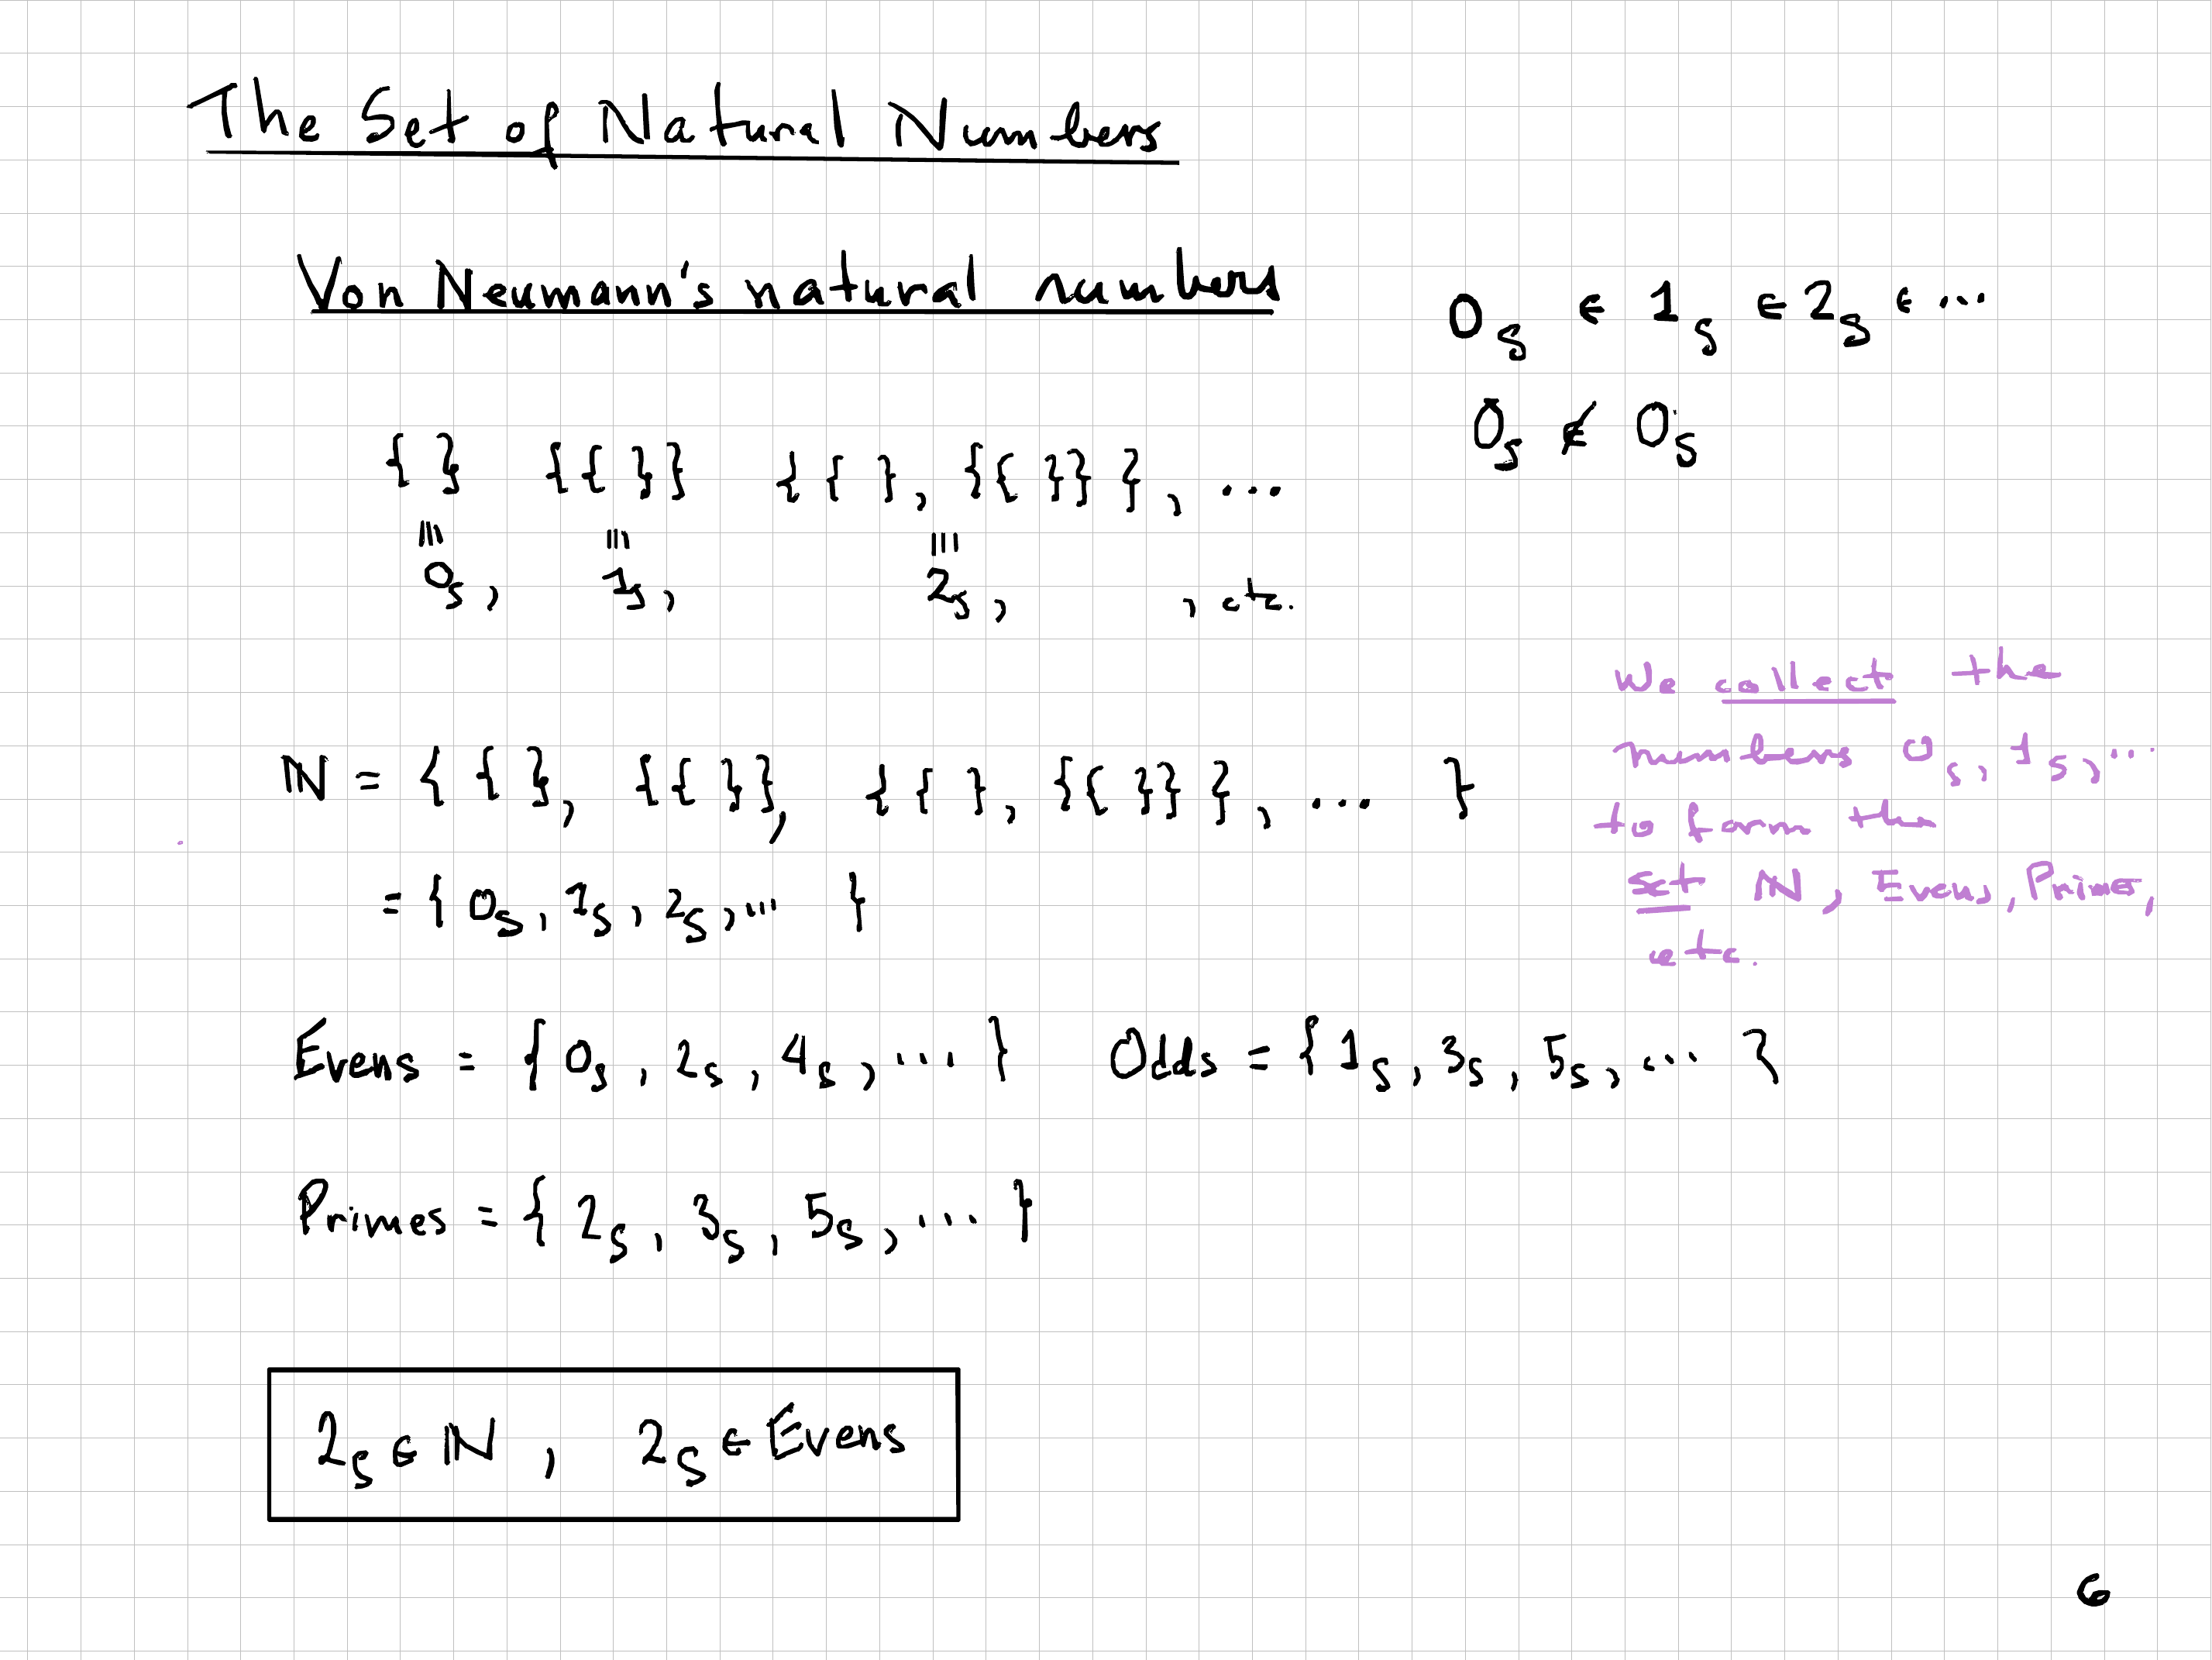 The Set of Natural Numbers
Von Neumann's natural numbers
0ₛ ∈ 1ₛ ∈ 2ₛ ∈ ...
0ₛ ∉ 0ₛ
{ } {{ }} {{ }, {{ }}}, ...
≡ ≡ ≡
0ₛ, 1ₛ, 2ₛ, , etc.
We collect the
numbers 0ₛ, 1ₛ, ...
to form the
set ℕ, Evens, Primes,
etc.
ℕ = { { }, {{ }}, {{ }, {{ }}}, ... }
= { 0ₛ, 1ₛ, 2ₛ, ... }
Evens = { 0ₛ, 2ₛ, 4ₛ, ... } Odds = { 1ₛ, 3ₛ, 5ₛ, ... }
Primes = { 2ₛ, 3ₛ, 5ₛ, ... }
2ₛ ∈ ℕ, 2ₛ ∈ Evens
6